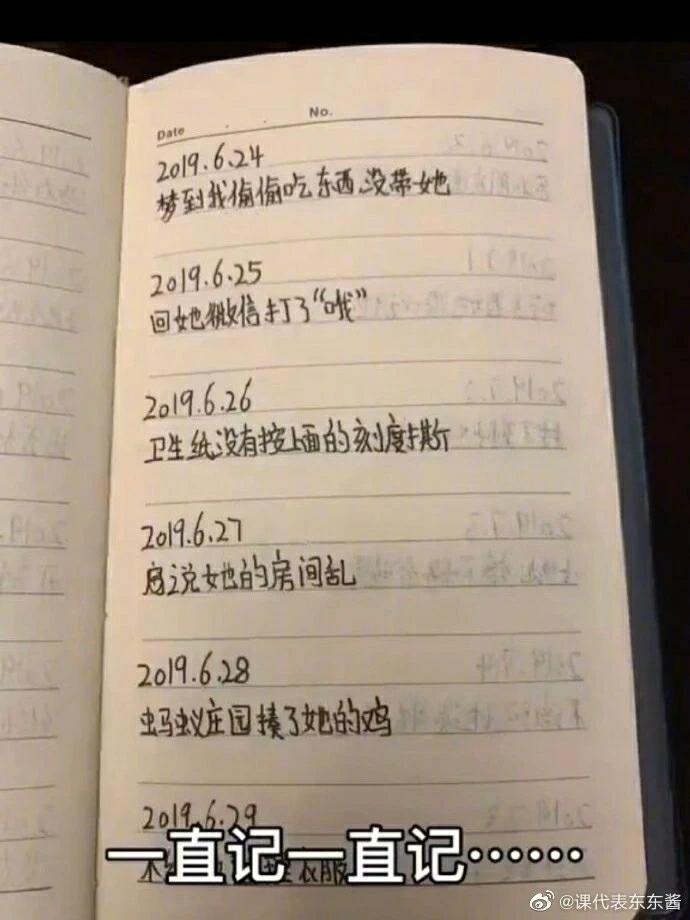 Date
No.
2019.6.24
梦到我偷偷吃东西没带她
2019.6.25
回她微信打了“哦”
2019.6.26
卫生纸没有按上面的刻度撕
2019.6.27
说她的房间乱
2019.6.28
蚂蚁庄园揍了她的鸡
2019.6.29
衣服
一直记一直记……
@课代表东东酱